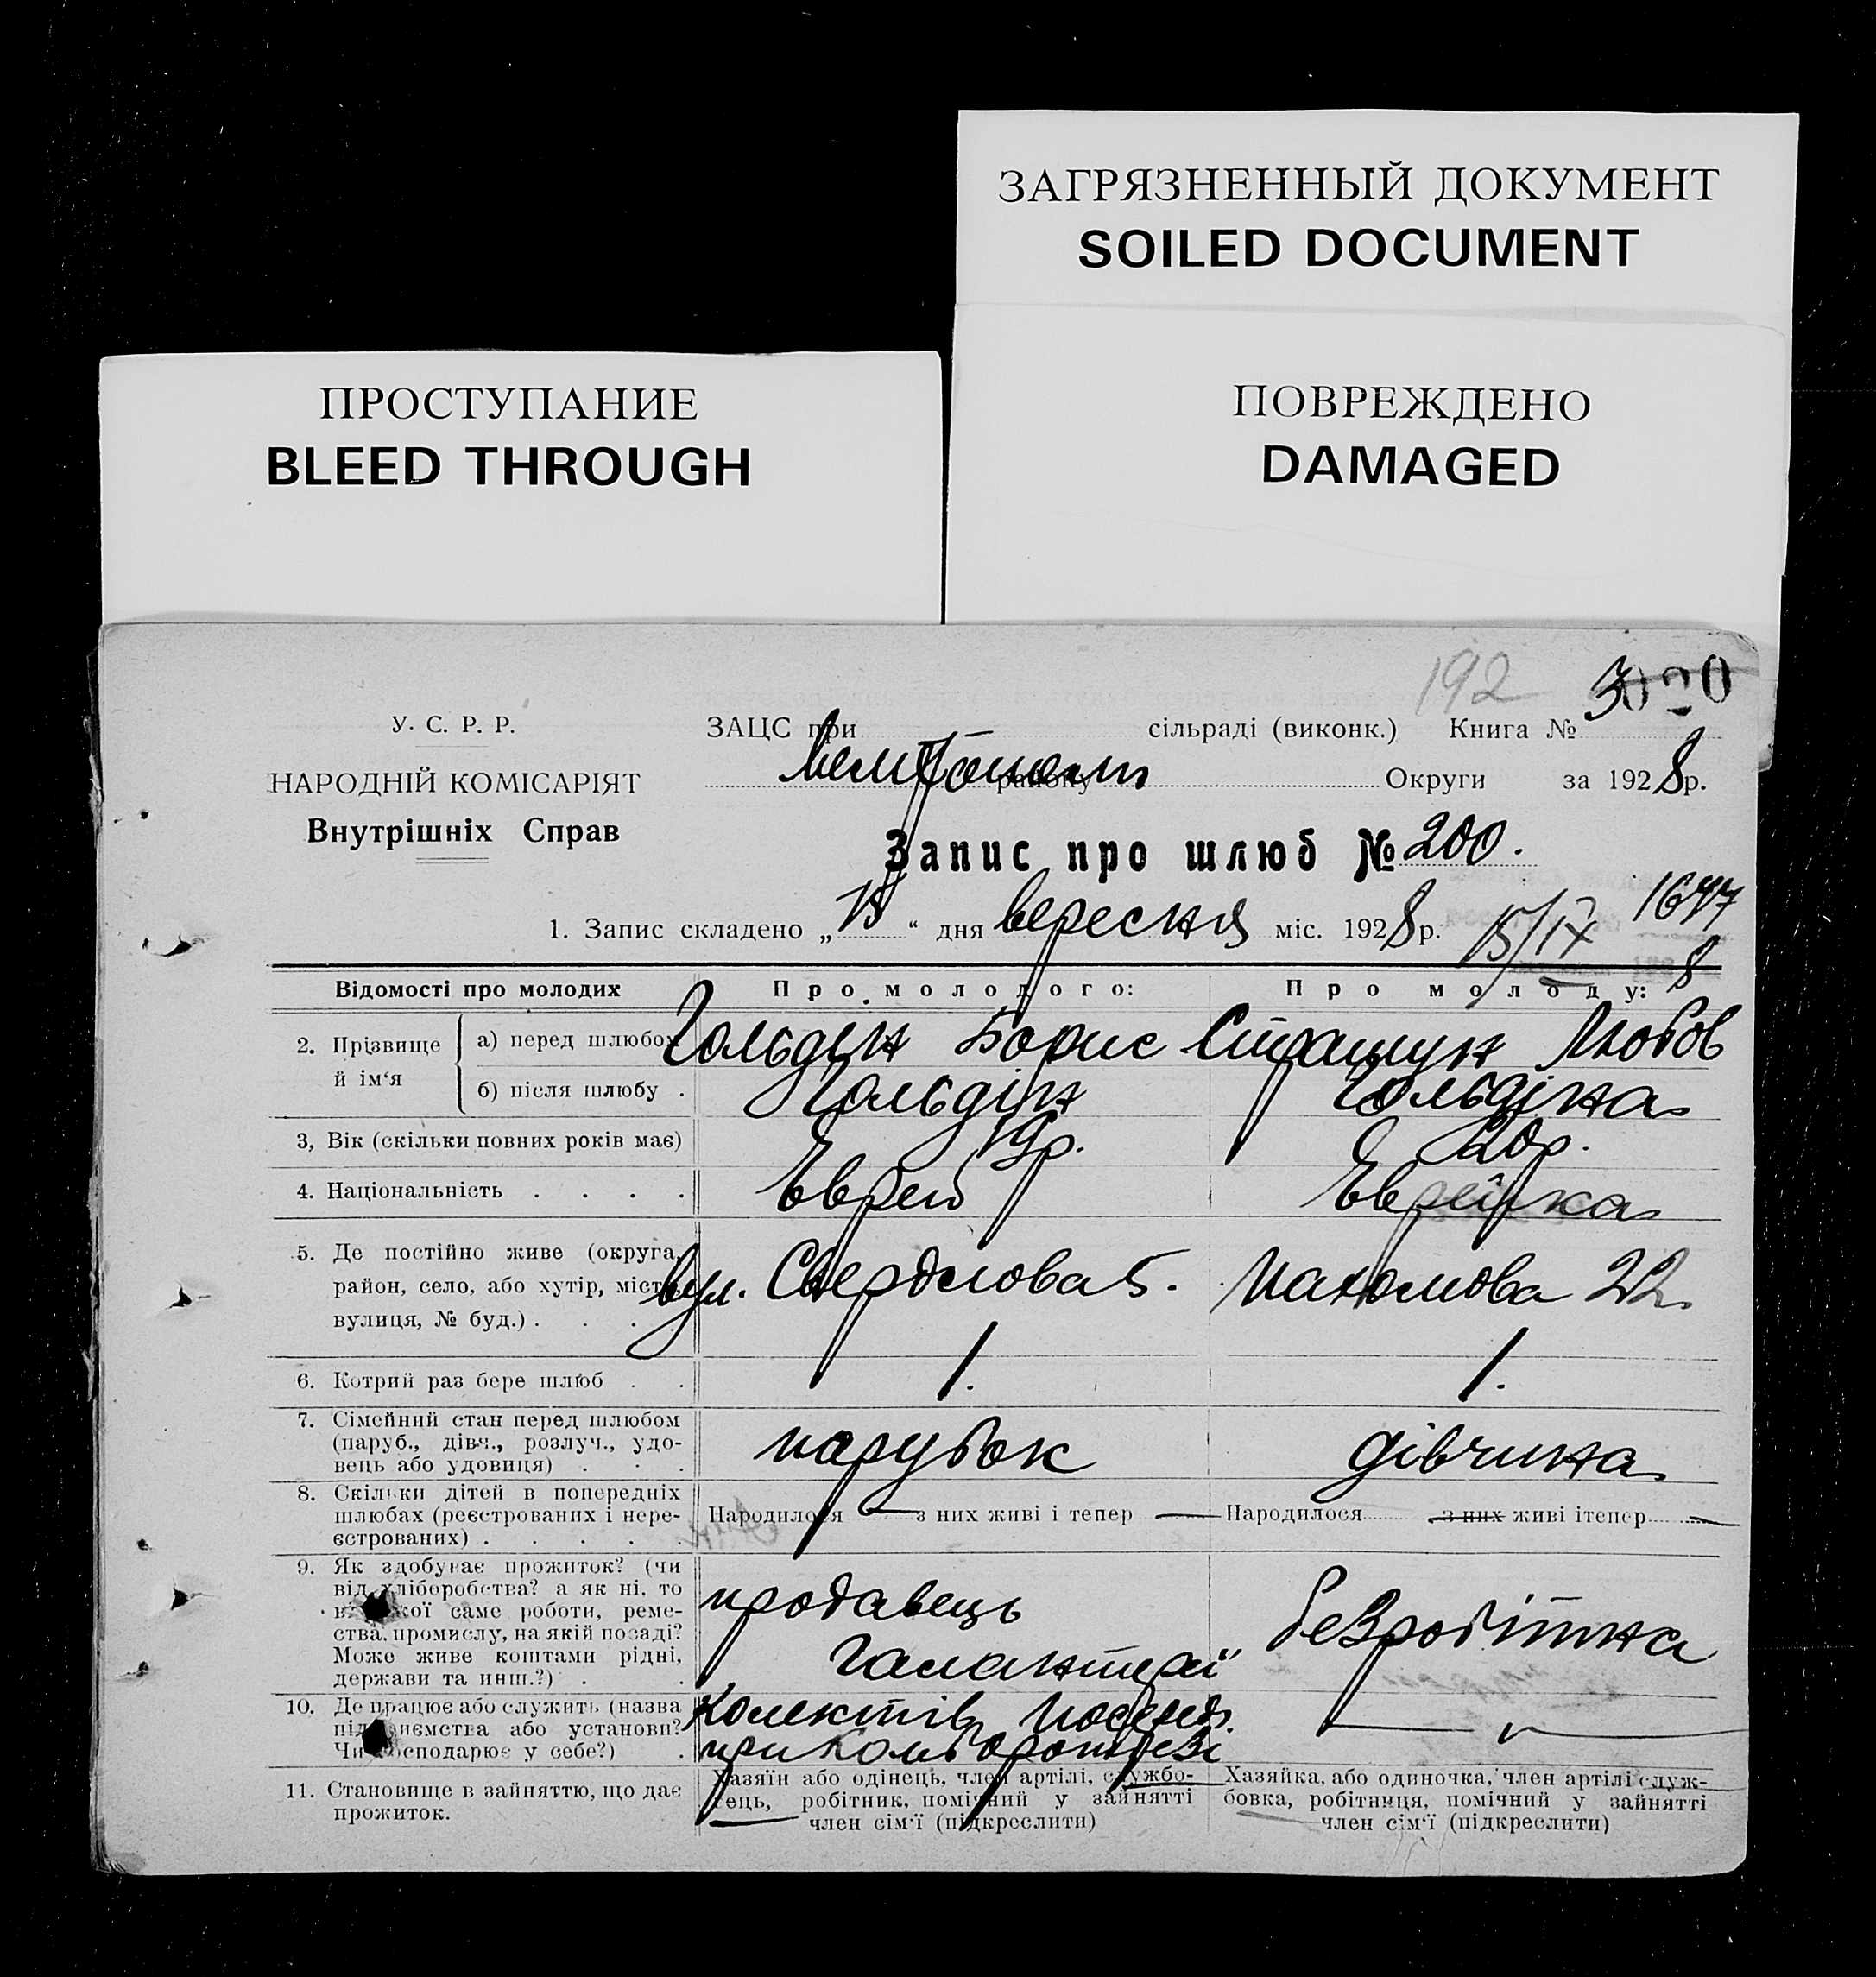 ЗАГРЯЗНЕННЫЙ ДОКУМЕНТ
SOILED DOCUMENT
ПРОСТУПАНИЕ
BLEED THROUGH
ПОВРЕЖДЕНО
DAMAGED
192
У. С. Р. Р.
НАРОДНІЙ КОМІСАРІЯТ
Внутрішніх Справ
ЗАЦС при сільраді (виконк.) Книга №
району Округи за 1928 р.
Запис про шлюб № 200.
1. Запис складено „15“ дня вересня міс. 1928 р. 15/IX
Відомості про молодих Про молодого: Про молоду:
2. Прізвище й ім‘я
а) перед шлюбом Гольдін Борис Страшун Любов
б) після шлюбу . Гольдін Гольдіна
3, Вік (скільки повних років має) 19р. 20р.
4. Національність . . . . Єврей Єврейка
5. Де постійно живе (округа,
район, село, або хутір, місто вул. Свердлова 5. 22
вулиця, № буд.) . . . .
6. Котрий раз бере шлюб . . 1. 1.
7. Сімейний стан перед шлюбом
(паруб., дівч., розлуч., удо-
вець або удовиця) . . . парубок дівчина
8. Скільки дітей в попередніх
шлюбах (реєстрованих і нере-
єстрованих) . . . . .
Народилося — з них живі і тепер — Народилося з них живі ітепер —
9. Як здобуває прожиток? (чи
від хліборобства? а як ні, то
кої саме роботи, реме-
ства, промислу, на якій посаді?
Може живе коштами рідні,
держави та инш.?) . .
продавець
галантереї
безробітна
10. Де працює або служить (назва
підприємства або установи?
Чи господарює у себе?) .
Колектів
при
11. Становище в зайняттю, що дає
прожиток.
Хазяїн або одінець, член артілі, службо-
вець, робітник, помічний у зайнятті
член сім‘ї (підкреслити)
Хазяйка, або одиночка, член артілі служ-
бовка, робітниця, помічний у зайнятті
член сім‘ї (підкреслити)